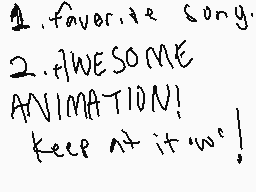 1. favorite song.
2. AWESOME
ANIMATION!
keep at it 'w' !